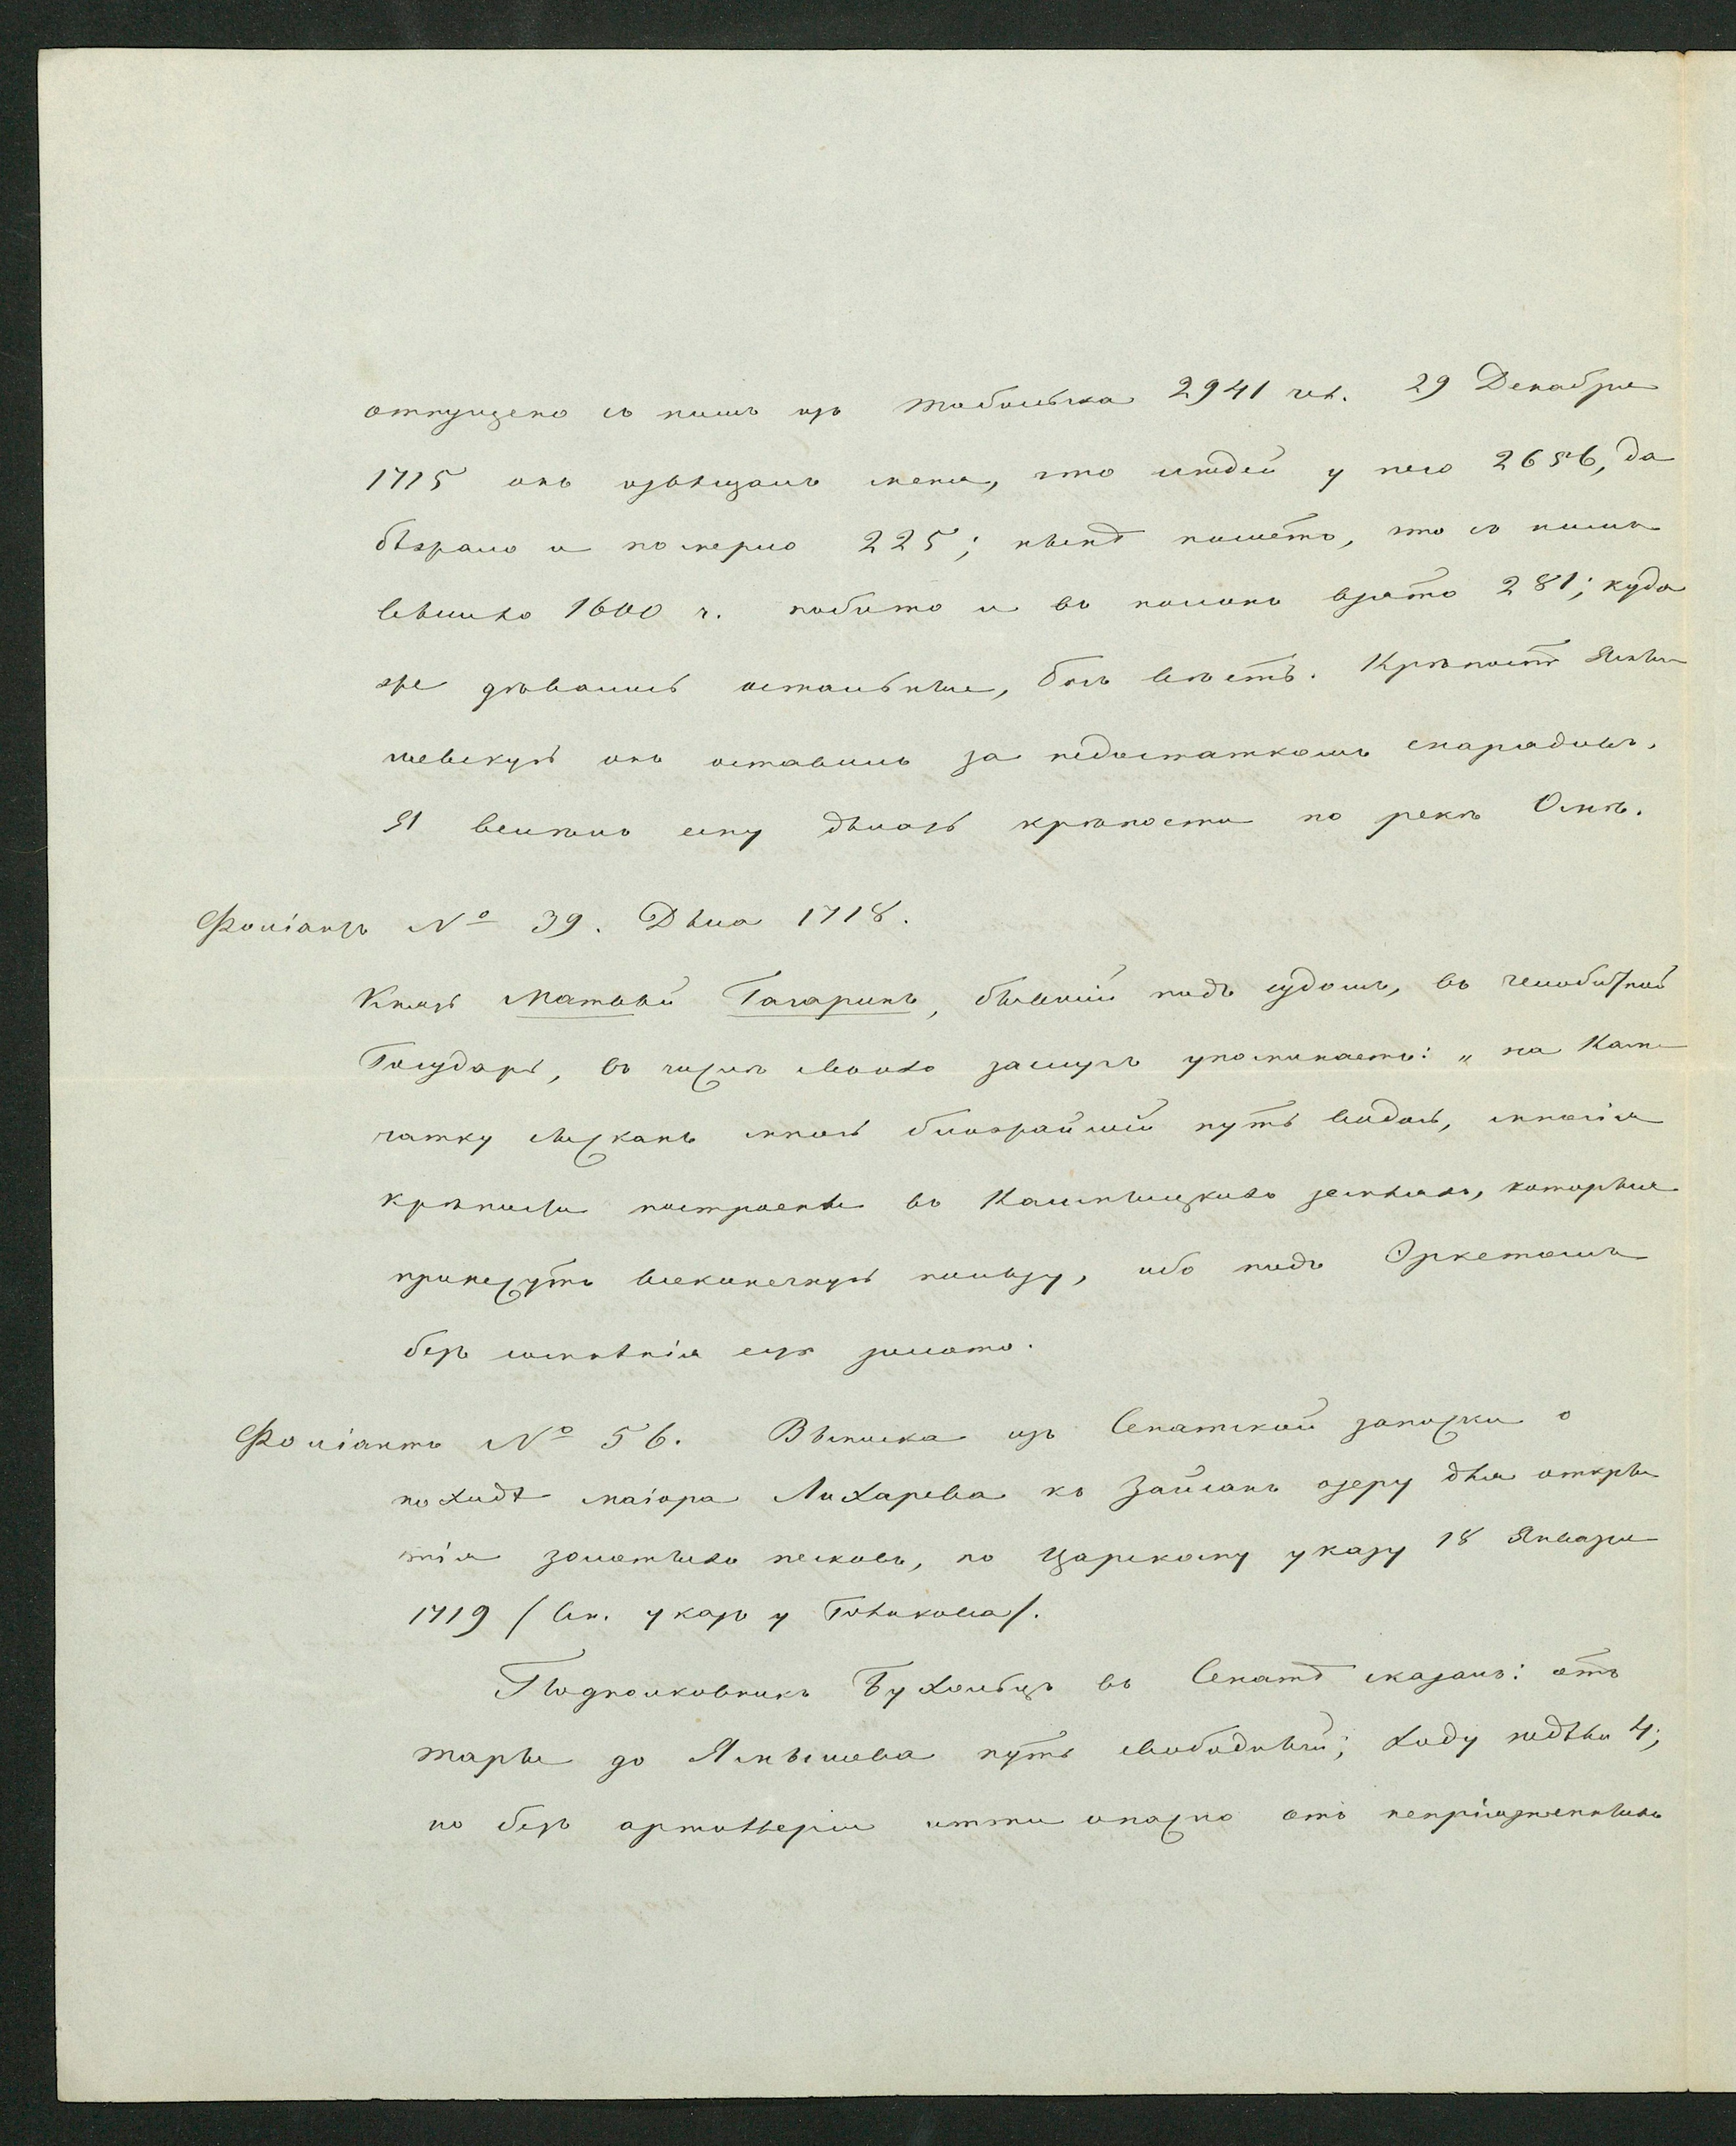 отпущено съ нимъ изъ Тобольска 2941 чел. 29 Декабря
1715 онъ извѣщалъ меня, что людей у него 2656, да
бѣжало и померло 225; нынѣ пишетъ, что съ нимъ
вышло 1600 ч. побито и въ полонъ взято 281; куда
же дѣвались остальные, богъ вѣсть. Крѣпость Ямы-
шевскую онъ оставилъ за недостаткомъ снарядовъ.
Я велѣлъ ему дѣлать крѣпости по рекѣ Омѣ.
Фоліантъ № 39. Дѣла 1718.
Князь Матвѣй Гагаринъ, бывшій подъ судомъ, въ челобитной
Государю, въ числѣ своихъ заслугъ упоминаетъ: „на Кам-
чатку сысканъ мною ближайшій путь водою, многія
крѣпости построены въ Калмыцкихъ земляхъ, которыя
принесутъ всеконечную пользу, ибо подъ Эркетомъ
безъ сомнѣнія есть золото.
Фоліантъ № 56. Выписка изъ Сенатской записки о
походѣ маіора Лихарева къ Зайсанъ озеру для откры-
тія золотыхъ песковъ, по Царскому указу 18 Января
1719 /см. указъ у Голикова/.
Подполковникъ Бухольцъ въ Сенатѣ сказалъ: отъ
Тары до Ямышева путь свободный; ходу недѣли 4;
но безъ артиллеріи итти опасно отъ непріязненныхъ